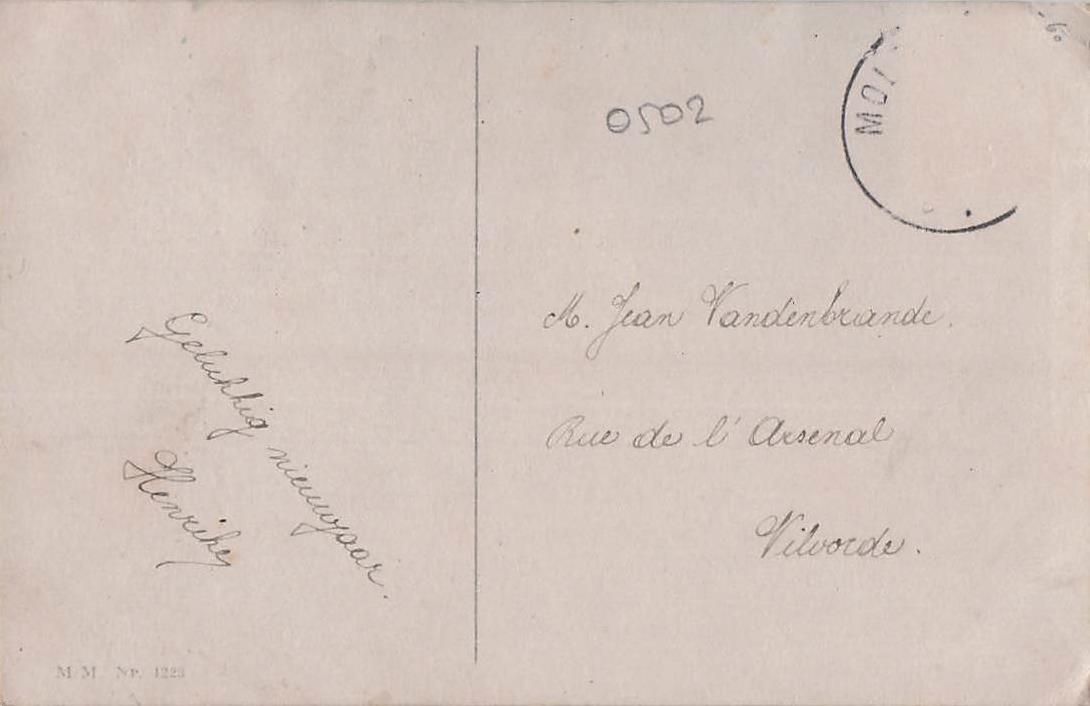 Gelukkig nieuwjaar.
M. M. Nr. 1223
0502
MOL
M. Jean Vandenbrande.
Rue de l' Arsenal
Vilvorde.